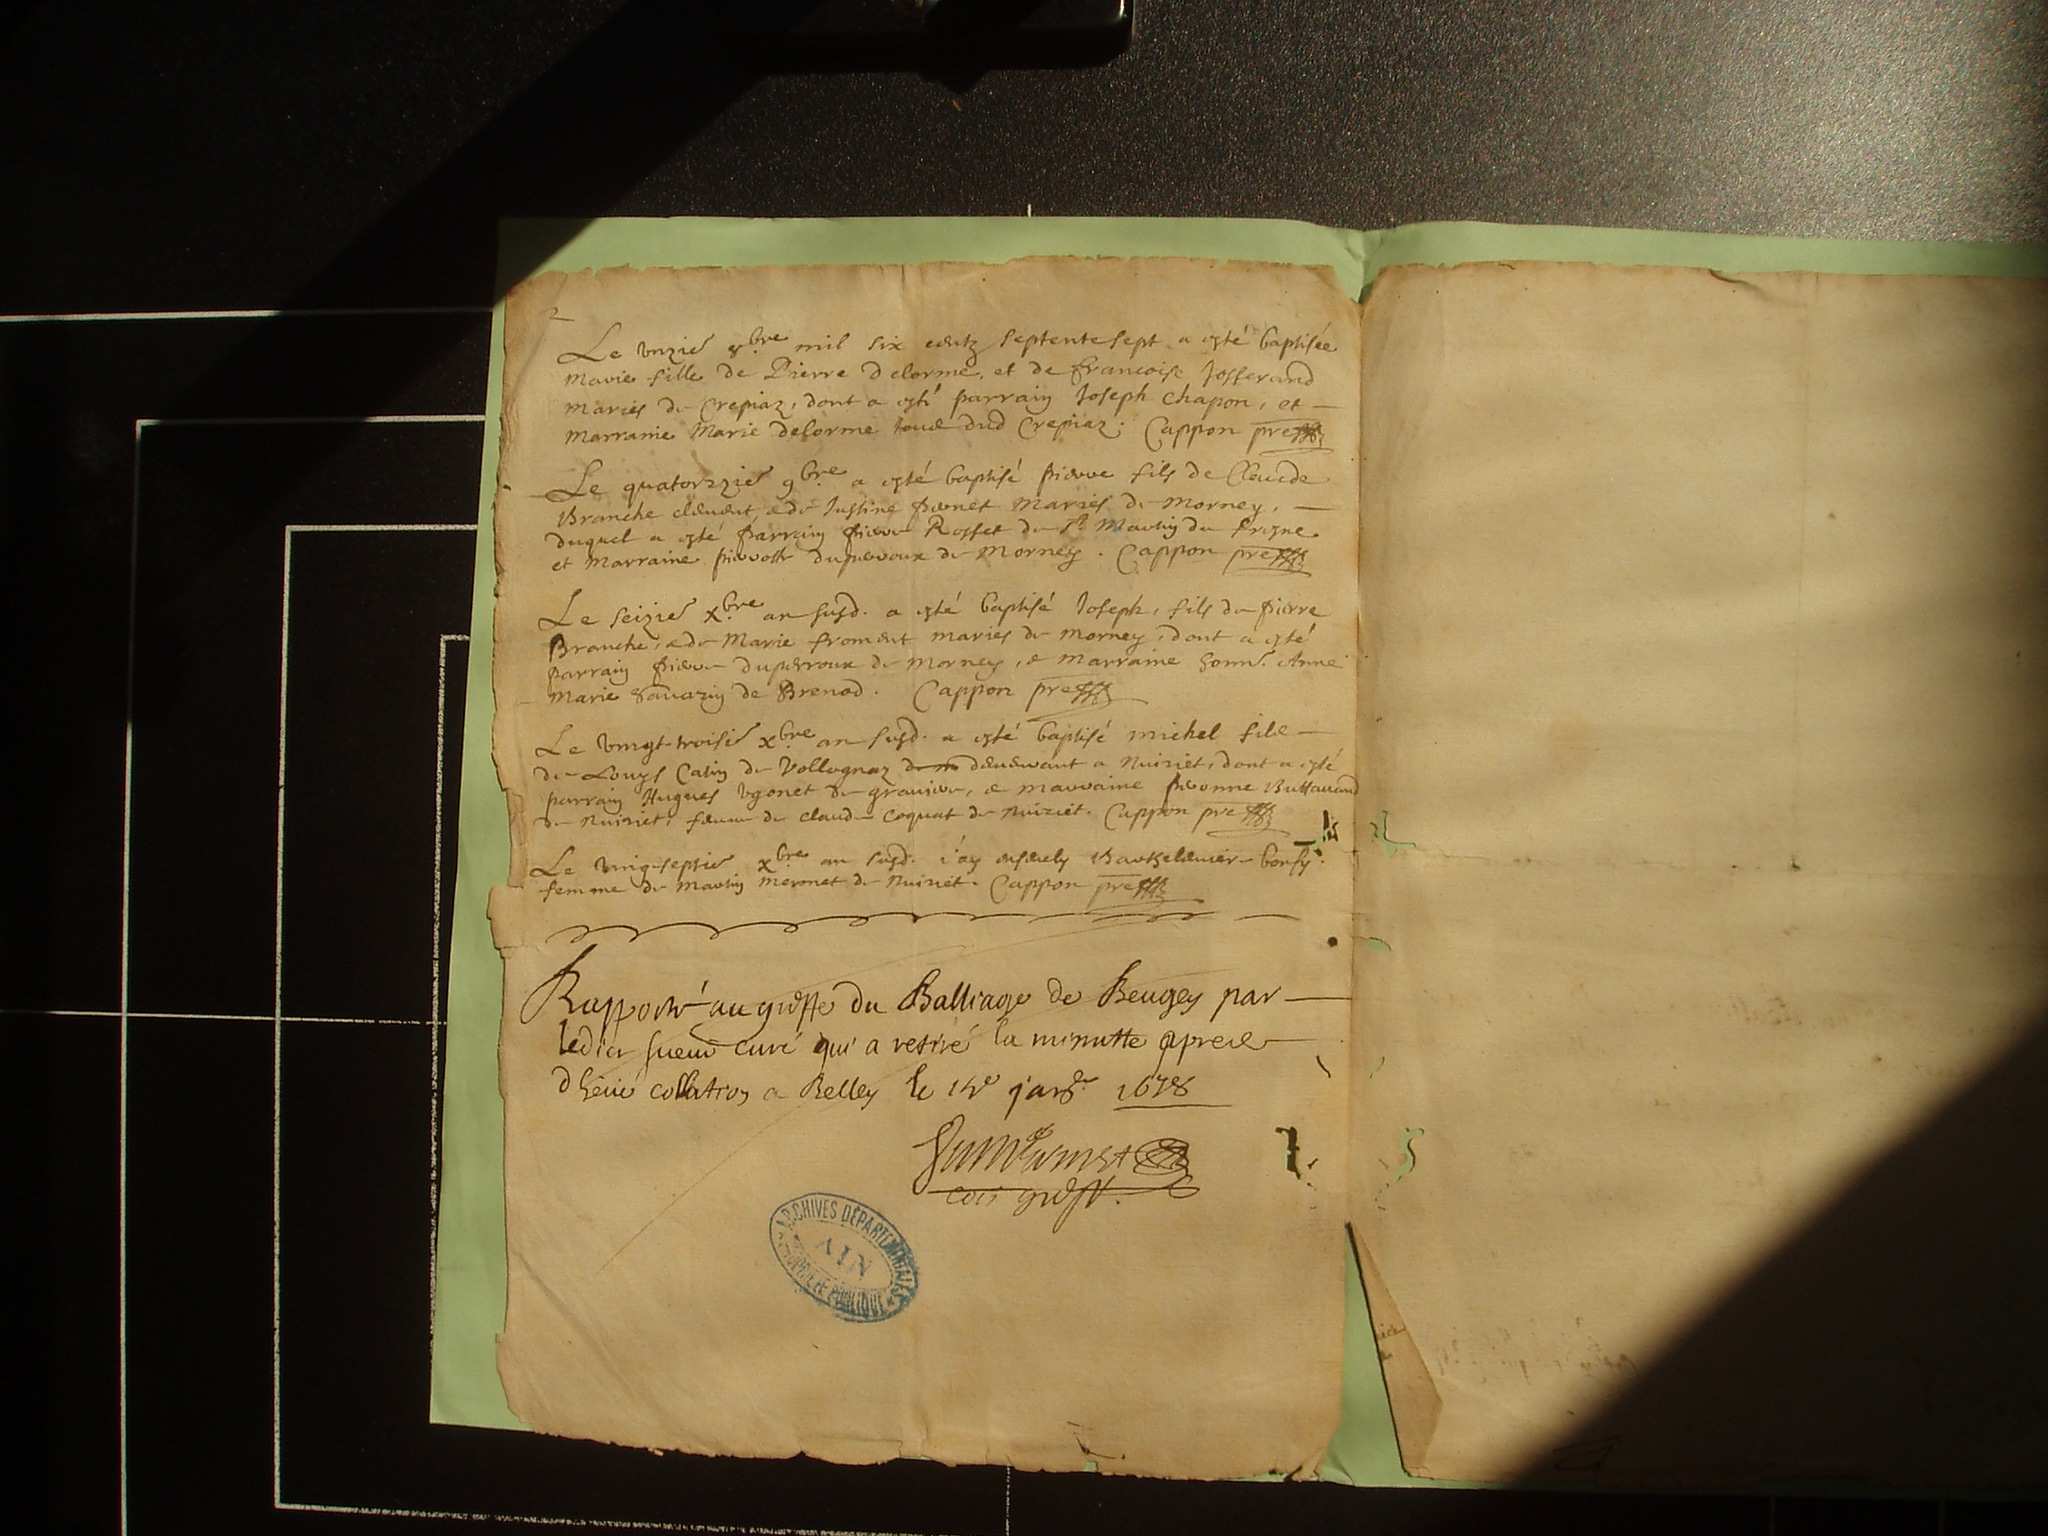 2
Le unzie 8bre mil six centz septente sept a esté baptisée
Marie fille de Pierre delorme, et de francoise Josserand
mariés de Crepiaz, dont a esté parrain Joseph Chapon, et
marraine Marie delorme tous dud Crepiaz. Cappon pre
Le quatorzie 9bre a esté baptisé pierre fils de Claude
Branche clement & de Justine mariés de Morney,
duquel a esté parrain pierre Rosset de St Martin du fresne
et Marraine duperroux de Morney. Cappon pre
Le seizie xbre an susd. a esté baptisé Joseph, fils de pierre
Branche, & de Marie froment mariés de Morney, dont a esté
parrain pierre duperroux de Morney, & marraine honn. Anne
Marie Savarin de Brenod. Cappon pre
Le vingt-troisie xbre an susd. a esté baptisé michel fils
de Louys Catin de Vollognaz demeurant a Nuiriet, dont a esté
parrain Hugues Ugonet de, & marraine
de Nuiriet, femme de claude Coquat de Nuiriet. Cappon pre
Le ving-septie xbre an susd. j'ay ensevely
femme de Martin Meronet de Nuiriet. Cappon pre
Rapporté au greffe du Balliage de Beugey par
ledict sieur curé qui a retiré la minutte apres
collation a Belley le janr. 1678
greff.
ARCHIVES DÉPARTEMENTALES
AIN
PROPRIÉTÉ PUBLIQUE